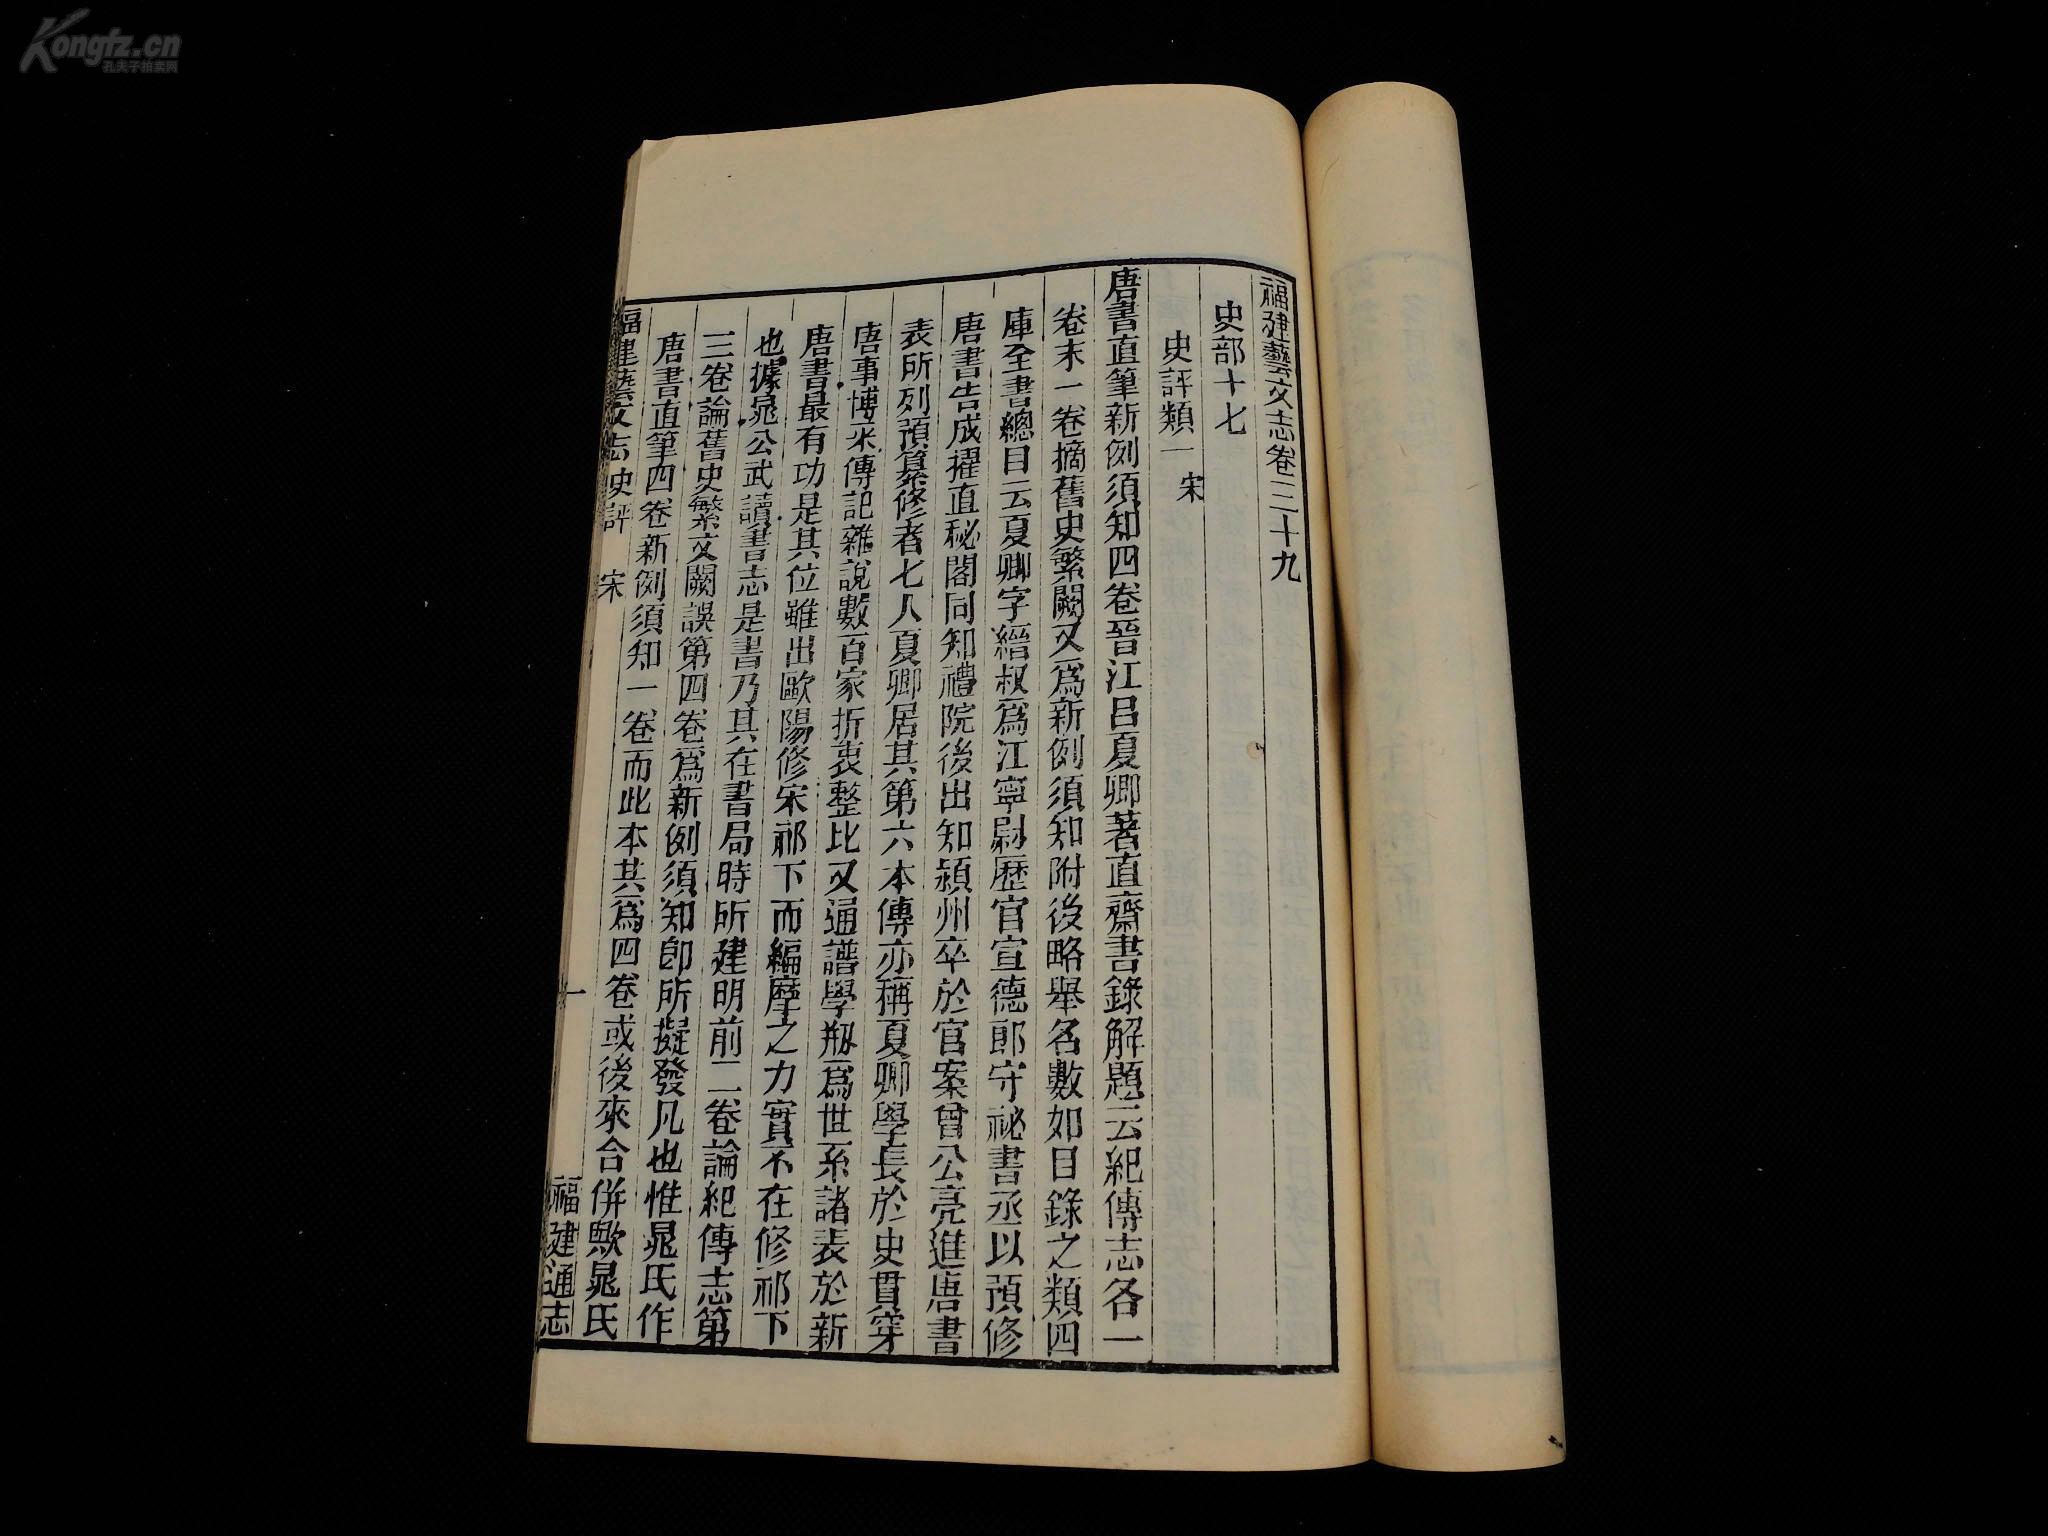 Kongfz.cn
孔夫子拍卖网
福建藝文志卷三十九
史部十七
史評類一 宋
唐書直筆新例須知四卷晉江呂夏卿著直齋書錄解題云紀傳志各一
卷末一卷摘舊史繁闕又爲新例須知附後略舉名數如目錄之類四
庫全書總目云夏卿字縉叔爲江寧尉歷官宣德郎守祕書丞以預修
唐書告成擢直秘閣同知禮院後出知潁州卒於官案曾公亮進唐書
表所列預纂修者七人夏卿居其第六本傳亦稱夏卿學長於史貫穿
唐事博采傳記雜說數百家折衷整比又通譜學刱爲世系諸表於新
唐書最有功是其位雖出歐陽修宋祁下而編摩之力實不在修祁下
也據晁公武讀書志是書乃其在書局時所建明前二卷論紀傳志第
三卷論舊史繁文闕誤第四卷爲新例須知卽所擬發凡也惟晁氏作
唐書直筆四卷新例須知一卷而此本共爲四卷或後來合併歟晁氏
福建藝文志 史評 宋 一 福建通志